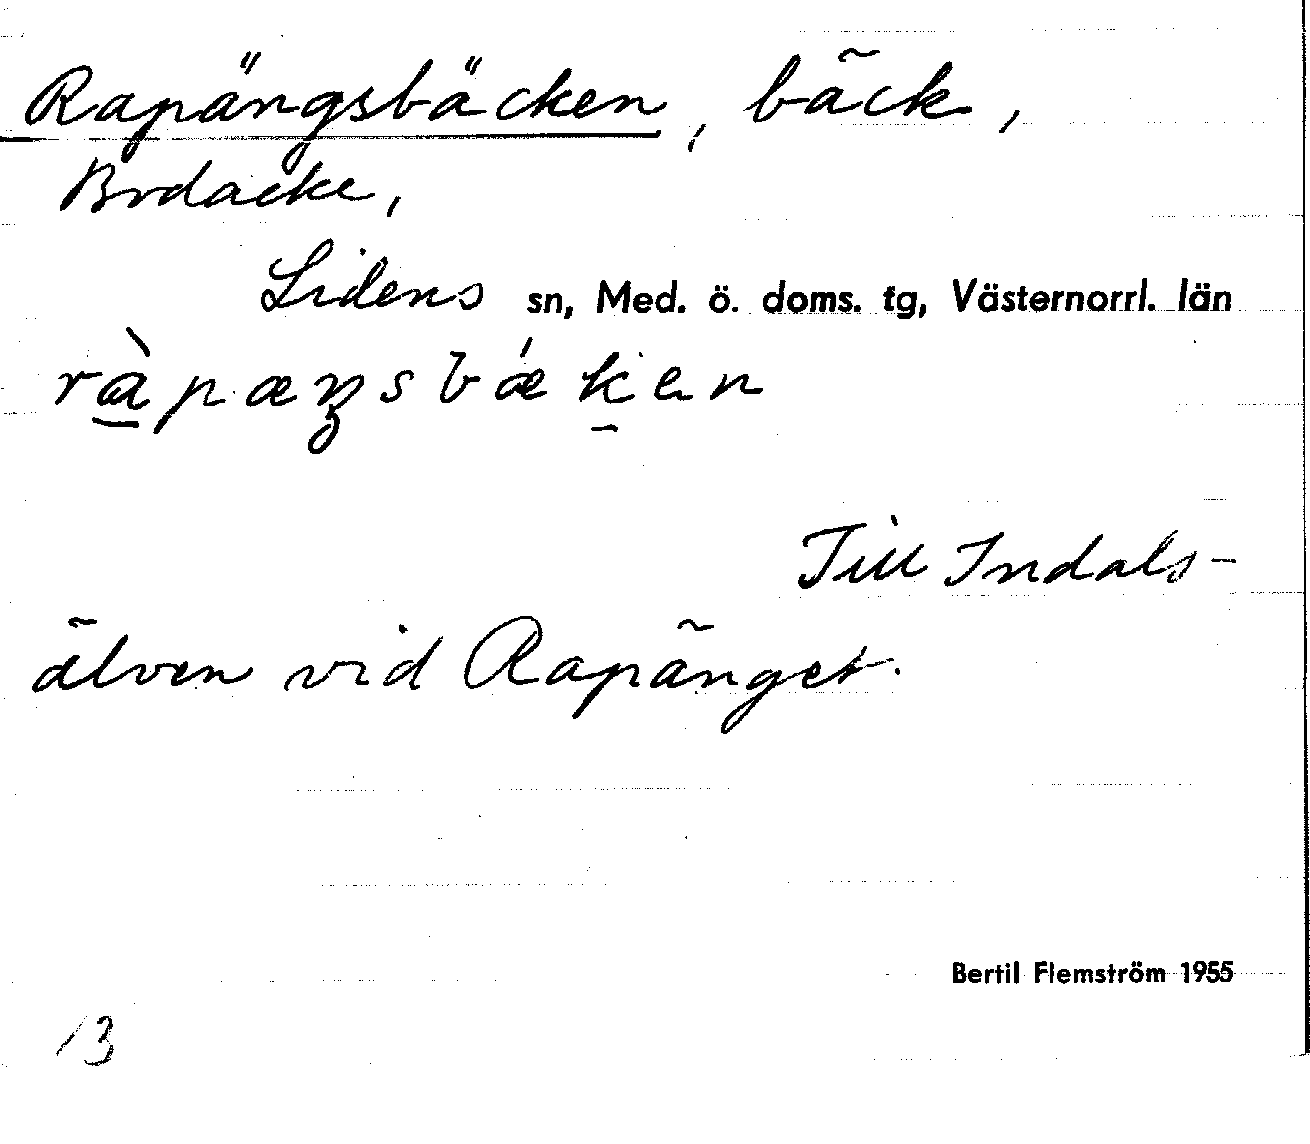 Rapängsbäcken, bäck,
Brdacke,
Lidens sn, Med. ö. doms. tg, Västernorrl. län
rà̱pæŋsbǽḵen
Till Indals-
älven vid Rapänget.
Bertil Flemström 1955
13